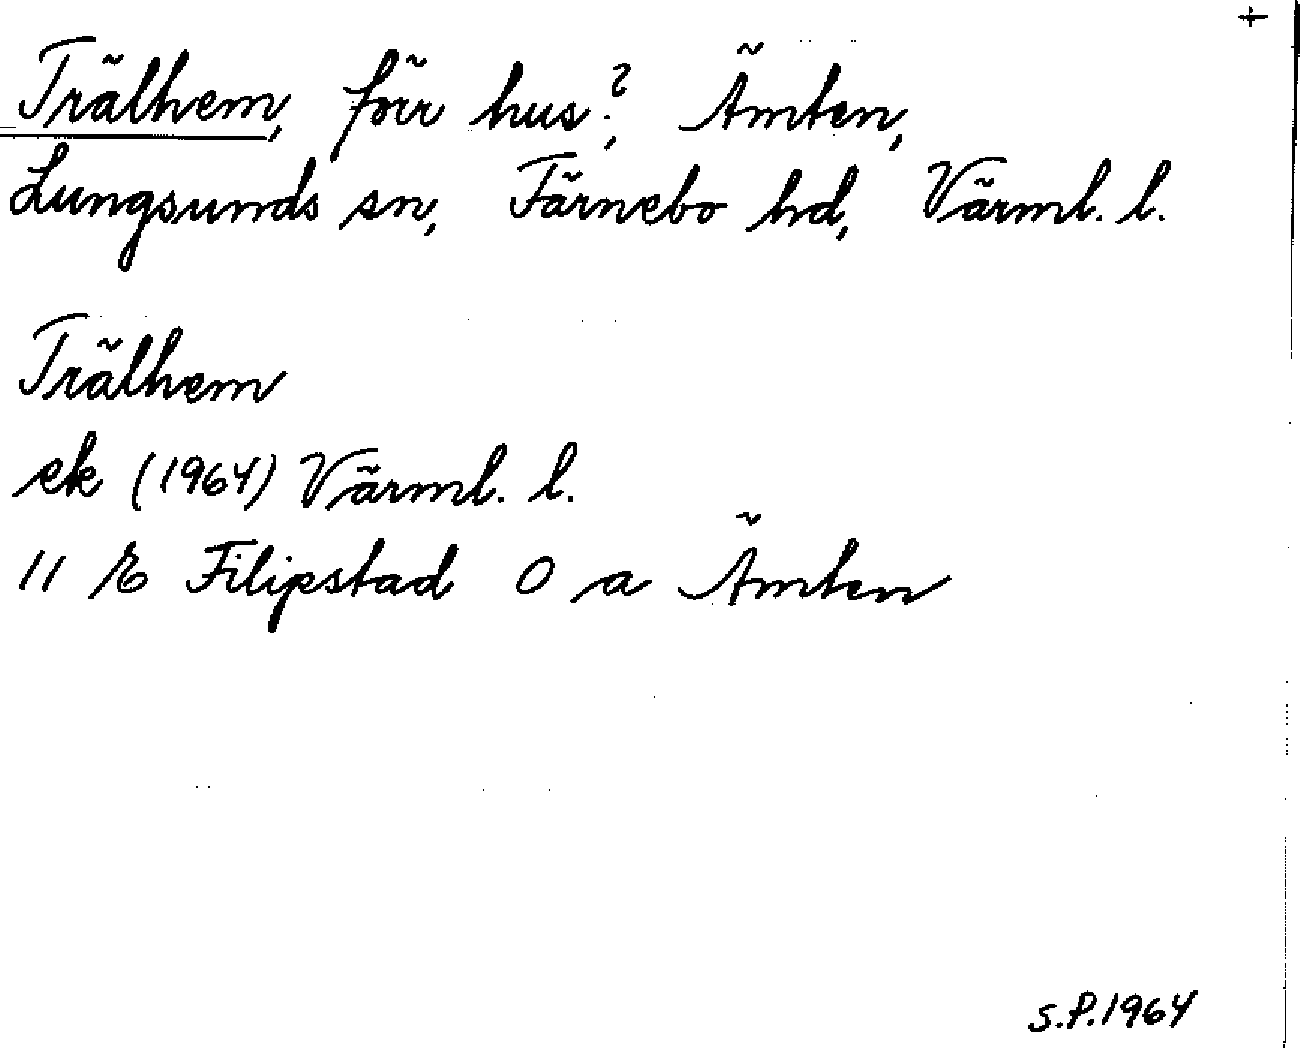 +
Trälhem, förr hus?, Ämten,
Lungsunds sn, Färnebo hd, Värml. l.
Trälhem
ek (1964) Värml. l.
11 E Filipstad O a Ämten
S.P.1964